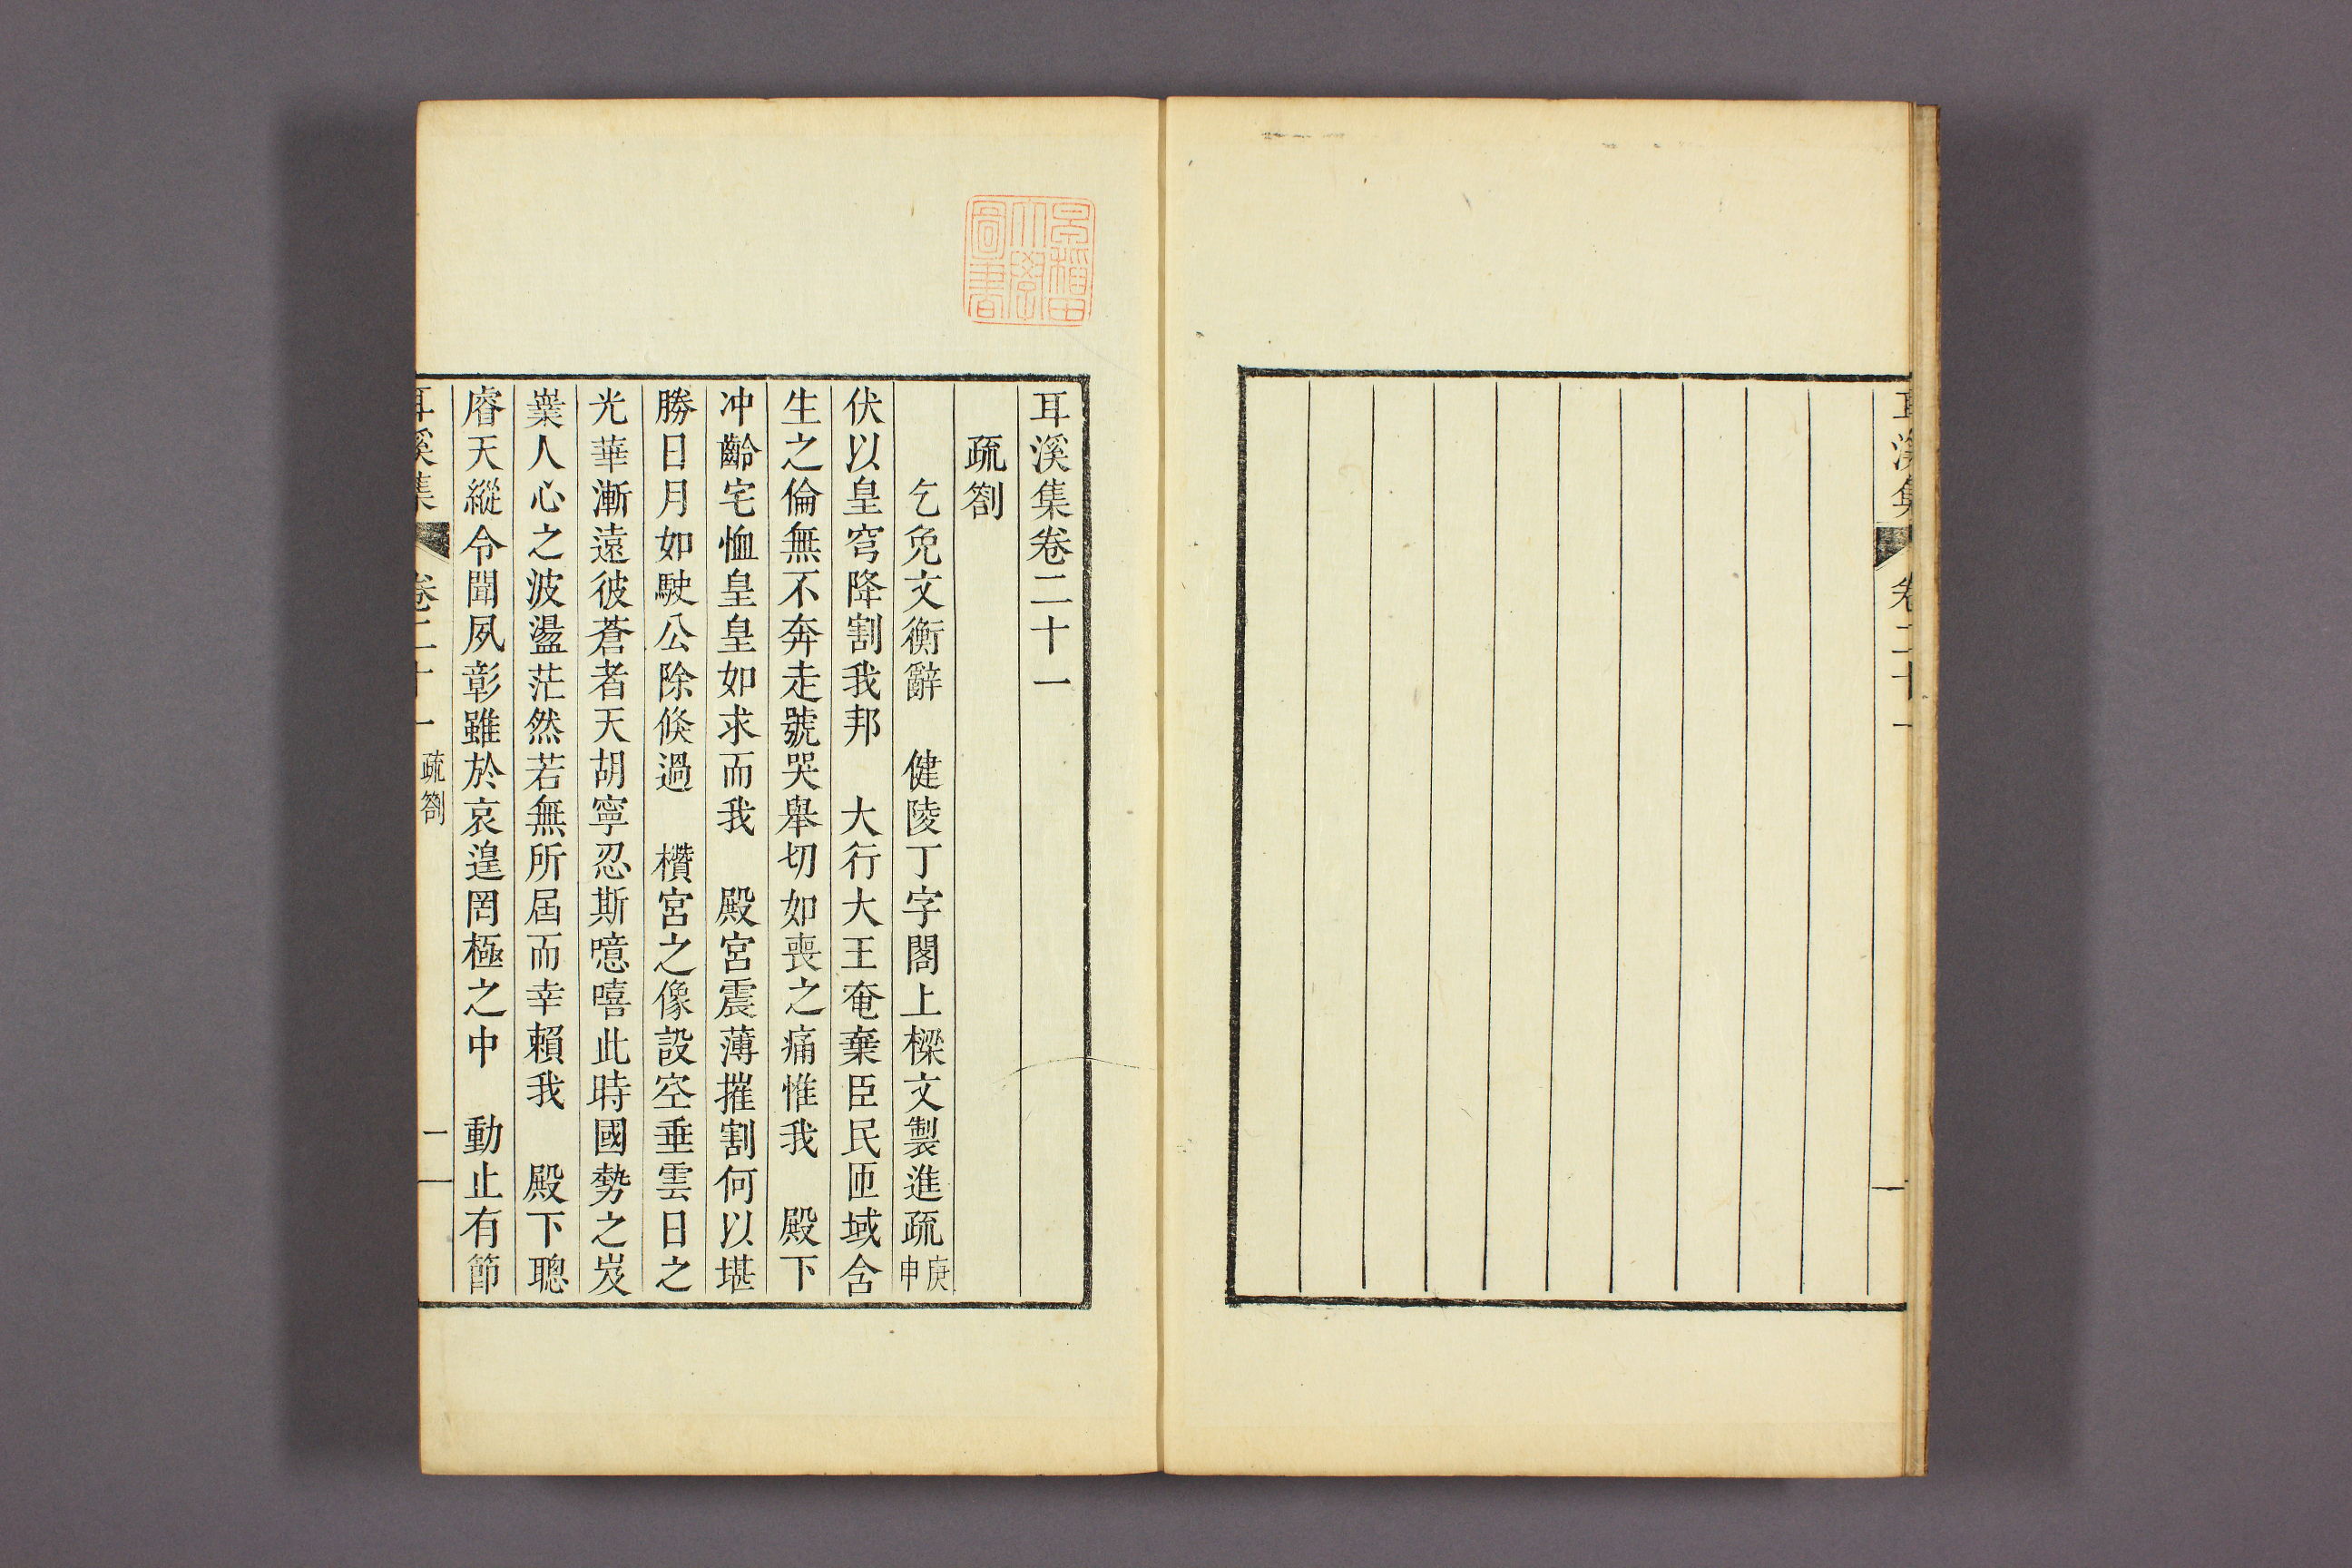 耳溪集
卷二十一
一
早稲田
大學
圖書
耳溪集卷二十一
疏劄
乞免文衡辭　健陵丁字閣上樑文製進疏庚申
伏以皇穹降割我邦　大行大王奄棄臣民匝域含
生之倫無不奔走號哭舉切如喪之痛惟我　殿下
冲齡宅恤皇皇如求而我　殿宮震薄摧割何以堪
勝日月如駛公除倐過　欑宮之像設空垂雲日之
光華漸遠彼蒼者天胡寧忍斯噫嘻此時國勢之岌
嶪人心之波盪茫然若無所屆而幸賴我　殿下聰
睿天縱令聞夙彰雖於哀遑罔極之中　動止有節
耳溪集
卷二十一
疏劄
一